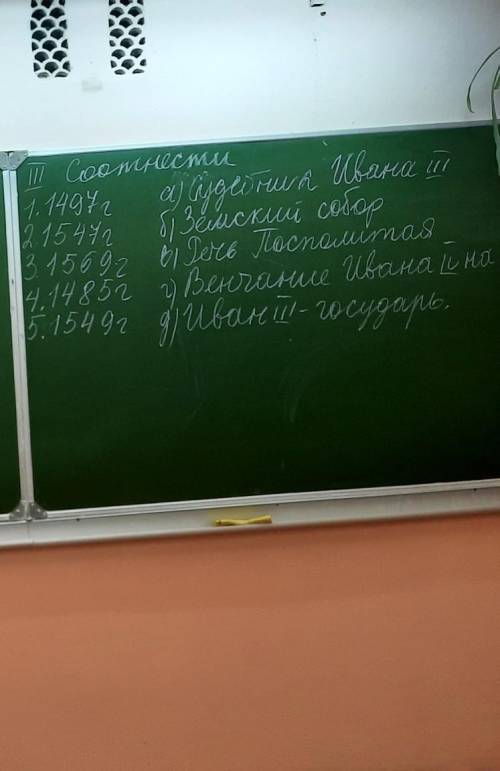 III Соотнести
1. 1497г а) Судебник Ивана III
2. 1547г б) Земский собор
3. 1569г в) Речь Посполитая
4. 1485г г) Венчание Ивана IV на
5. 1549г д) Иван III - государь.